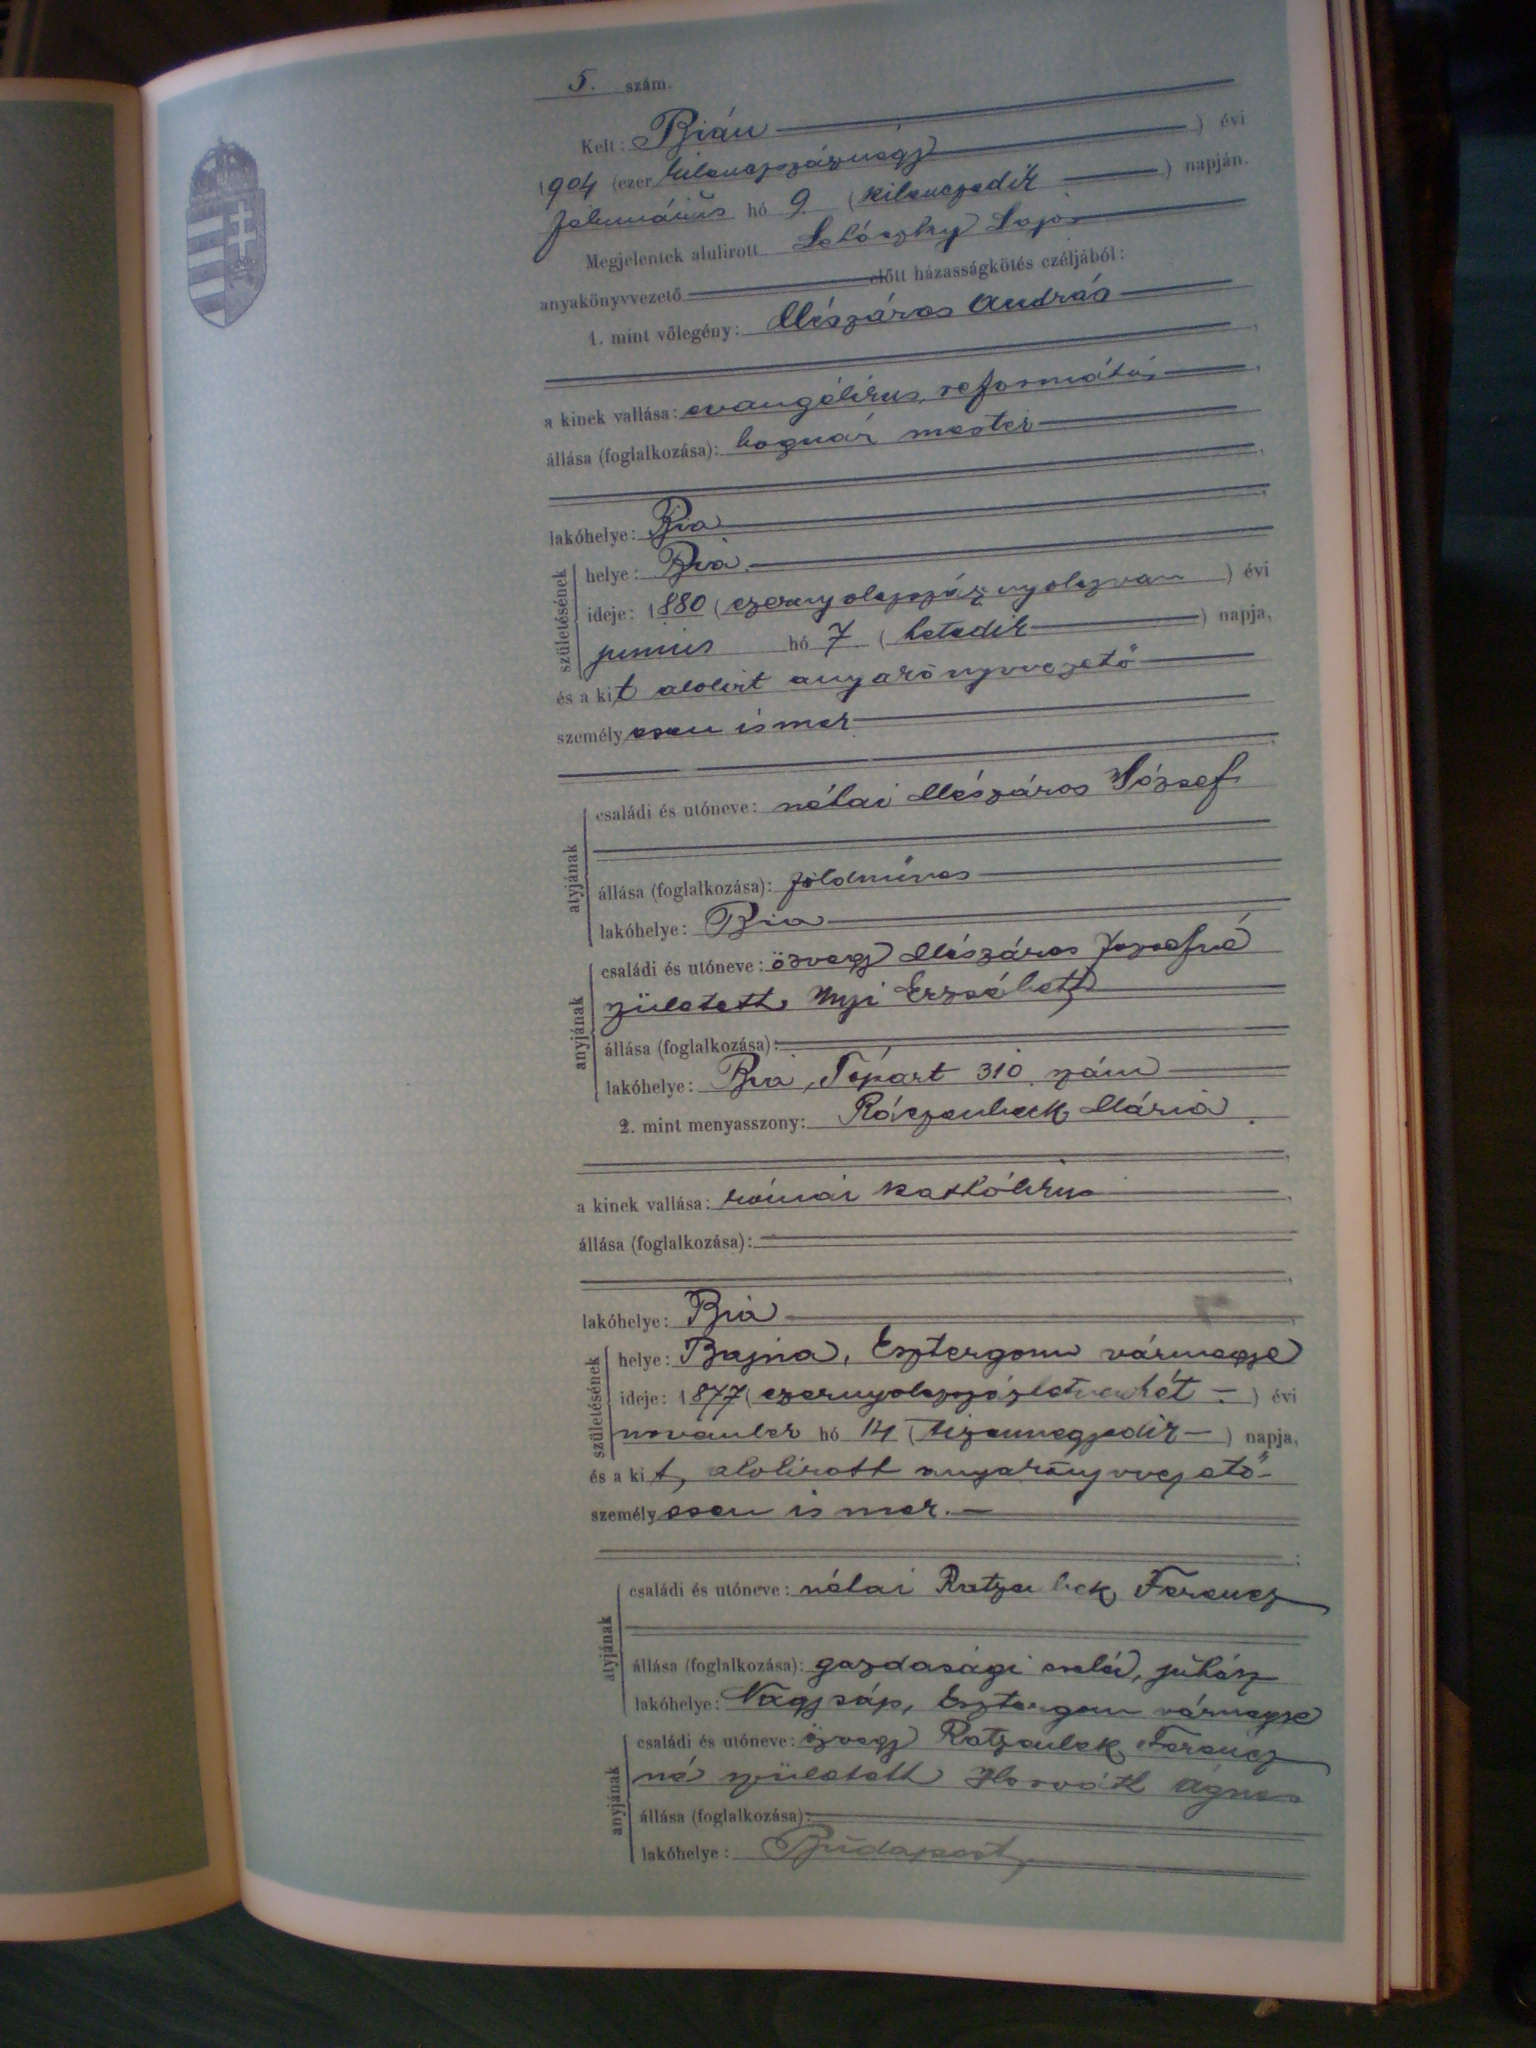 5. szám.
Kelt: Bián
1904 (ezer kilenczszáznegy ) évi
február hó 9. (kilenczedik ) napján.
Megjelentek alulirott Lajos
anyakönyvvezető előtt házasságkötés czéljából:
1. mint vőlegény: Mészáros András
a kinek vallása: evangélikus, református
állása (foglalkozása): bognár mester
lakóhelye: Bia
születésének
helye: Bia
ideje: 1880 (ezernyolczszáznyolczvan ) évi
junius hó 7. (hetedik ) napja,
és a kit alolirt anyakönyvvezető
személyesen ismer
atyjának
családi és utóneve: néhai Mészáros József
állása (foglalkozása): földmüves
lakóhelye: Bia
anyjának
családi és utóneve: özvegy Mészáros Józsefné
született Nyi Erzsébett
állása (foglalkozása):
lakóhelye: Bia, Tópart 310. szám
2. mint menyasszony: Ráczenbeck Mária
a kinek vallása: római katkólikus
állása (foglalkozása):
lakóhelye: Bia
születésének
helye: Bajna, Esztergom vármegye
ideje: 1877 (ezernyolczszázhetvenhét ) évi
november hó 14 (tizennegyedik ) napja,
és a kit, alolirott anyakönyvvezető
személyesen ismer.
atyjának
családi és utóneve: néhai Ratzenbek Ferencz
állása (foglalkozása): gazdasági cseléd, juhász
lakóhelye: Nagysáp, Esztergom vármegye
anyjának
családi és utóneve: özvegy Ratzenbek Ferencz
né született Horváth Ágnes
állása (foglalkozása):
lakóhelye: Budapest